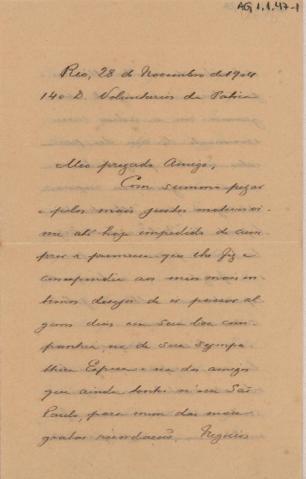 AG 1.1.47-1
Rio, 28 de Novembro de 1904
140 D. Voluntarios da Patria
Meu prezado Amigo,
Com summo pezar
e pelos mais justos motivos vi-
me até hoje impedido de cum-
prir a promessa que lhe fiz e
corresponder aos meus mais in-
timos desejos de ir passar al-
guns dias em sua boa com-
panhia, na de sua sympa-
thica Esposa e na dos amigos
que ainda tenho n'esse São
Paulo, para mim das mais
gratas recordações. Negocios